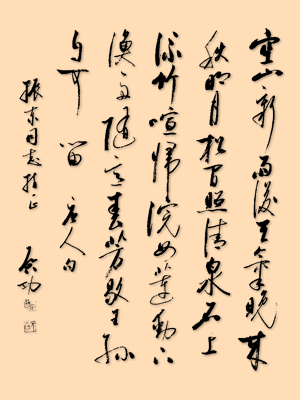 空山新雨後天氣晚來
秋明月松間照清泉石上
流竹喧歸浣女蓮動下
漁舟隨意春芳歇王孫
自可留 唐人句
振東同志指正 啟功